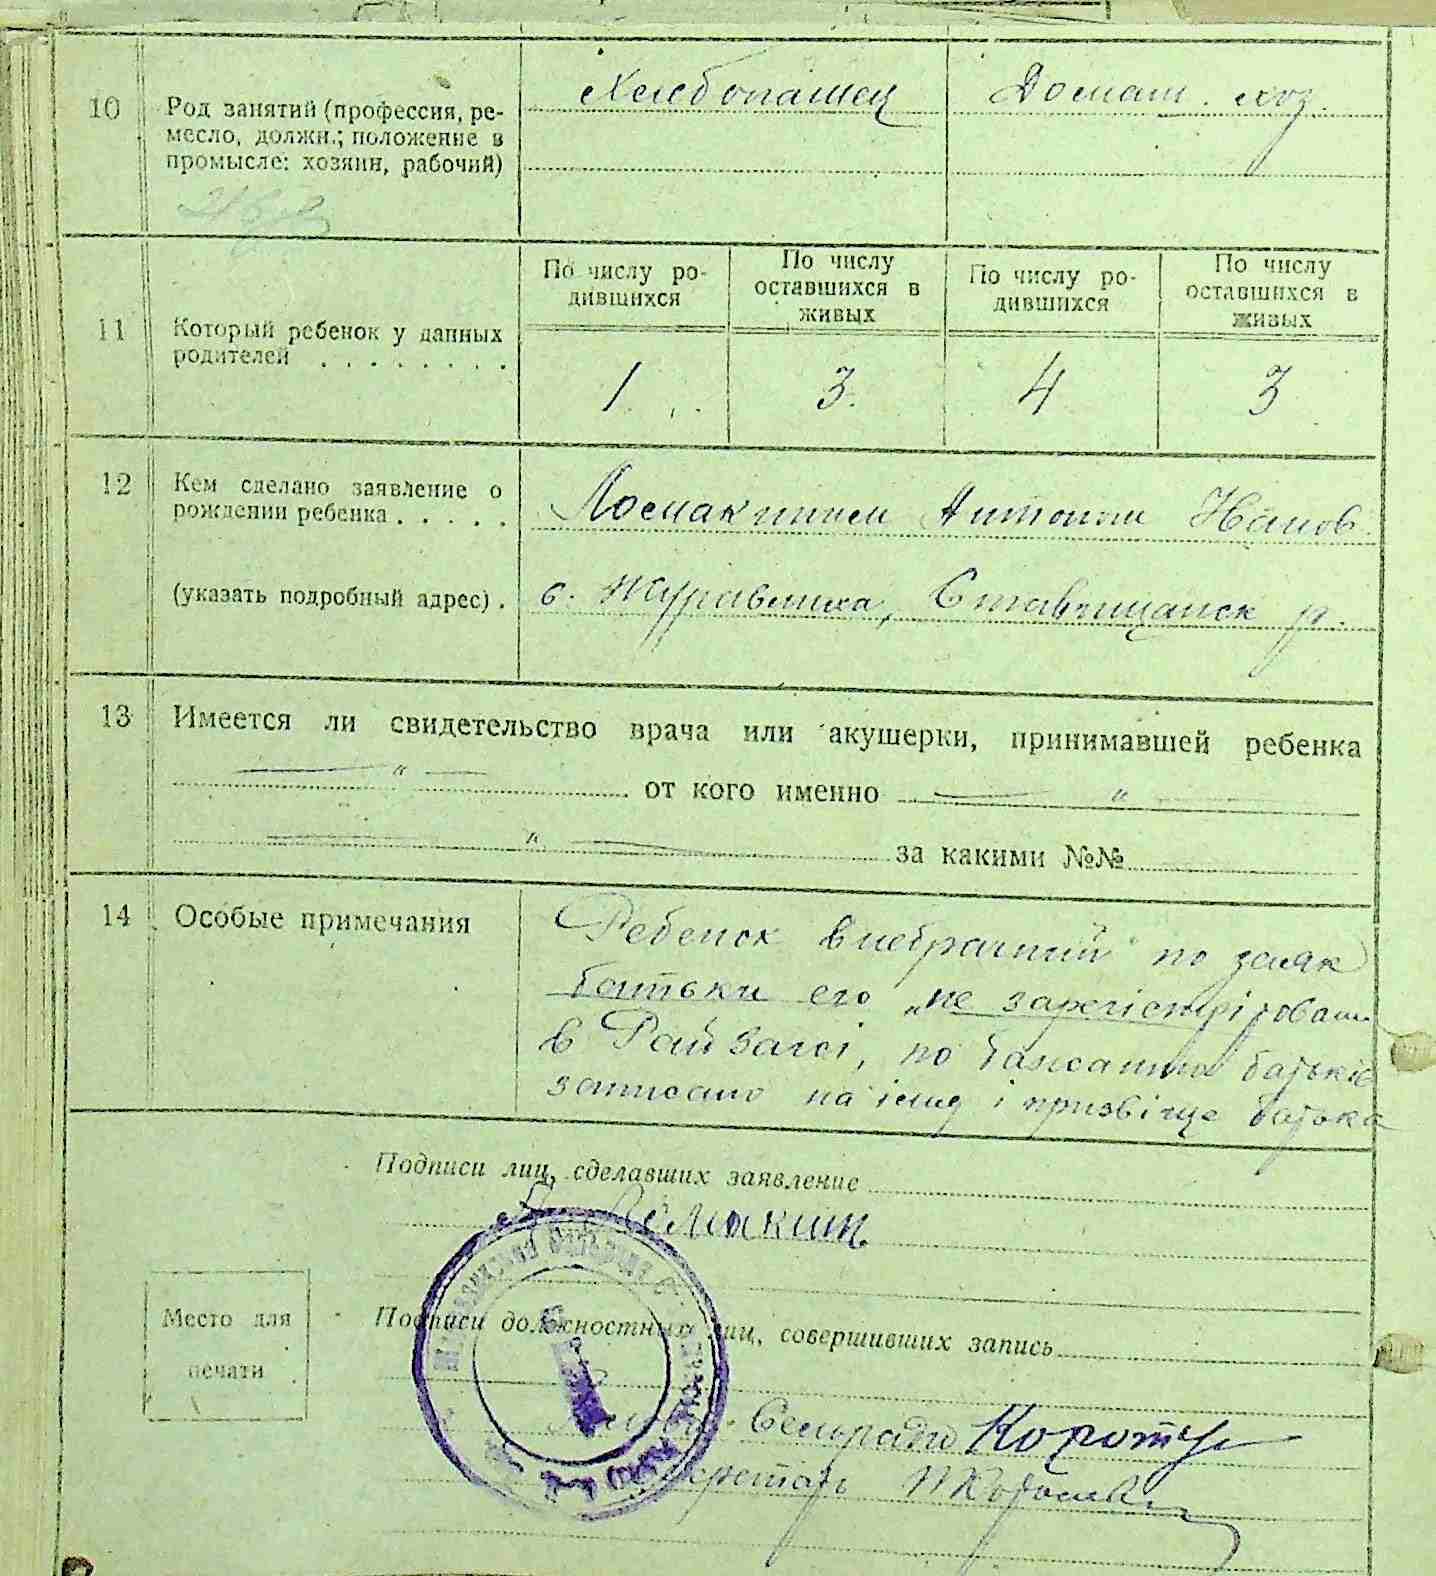 10 Род занятий (профессия, ре-
месло, должн.; положение в
промысле: хозяин, рабочий)
Хлебопашец
Домаш. хоз.
11 Который ребенок у данных
родителей . . . . . . . .
По числу ро-
дившихся
По числу
оставшихся в
живых
По числу ро-
дившихся
По числу
оставшихся в
живых
1 3 4 3
12 Кем сделано заявление о
рождении ребенка . . . . .
(указать подробный адрес) .
Лосмакиным Антоном Иванов.
с. Журавлиха, Ставищанск р.
13 Имеется ли свидетельство врача или акушерки, принимавшей ребенка
— " — от кого именно — " —
— " — за какими №№
14 Особые примечания
Ребенок внебрачний по
батьки его „не зарегістріровани
в Райзагсі, по бажанню батьків
записано на імя і призвіще батька
Подписи лиц, сделавших заявление
А.
Место для
печати
Подписи должностных лиц, совершивших запись
Сельради
Секретарь